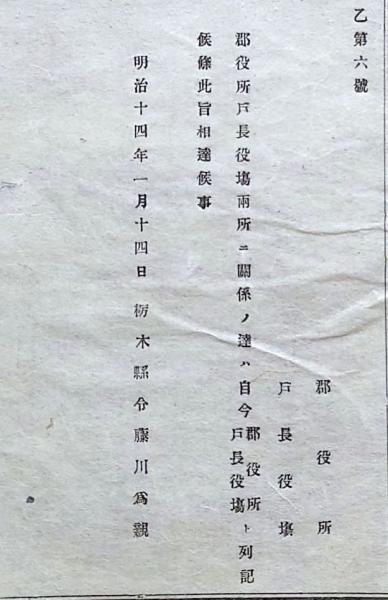 乙第六號
郡役所
戸長役塲
郡役所戸長役塲兩所ニ關係ノ達ハ自今郡役所戸長役塲ト列記
候條此旨相達候事
明治十四年一月十四日 栃木縣令藤川爲親